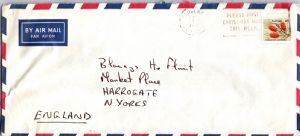 BY AIR MAIL
PAR AVION
PLEASE POST
CHRISTMAS MAIL
THIS WEEK
Market Place
HARROGATE
N YORKS
ENGLAND